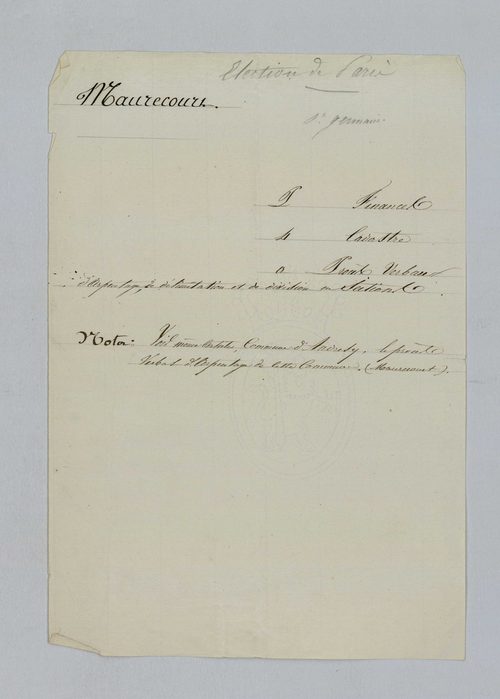 Election de Paris
Maurecourt.
St germain
P Finances
4 Cadastre
0 Procès Verbaux
d'Arpentage, de délimitation et de division en Sections.
Nota: Voir même Cartule, Commune d'Andresy, le procès
Verbal d'Arpentage de cette Commune. (Maurecourt).